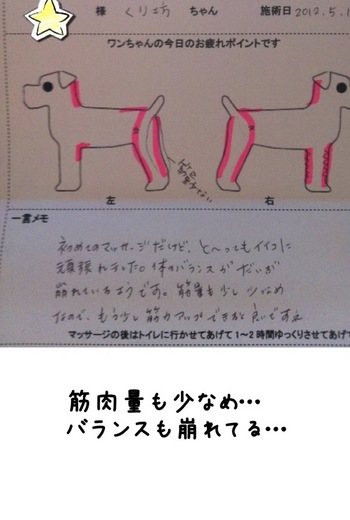 様 くり坊 ちゃん 施術日 2012.5.1
ワンちゃんの今日のお疲れポイントです
筋
少ない
左 右
一言メモ
初めてのマッサージだけど、と〜ってもイイコに
頑張れました。体のバランスがだいぶ
崩れているようです。筋量も少し少なめ
なので、もう少し筋力アップできると良いですネ
マッサージの後はトイレに行かせてあげて1〜2時間ゆっくりさせてあげて
筋肉量も少なめ…
バランスも崩れてる…